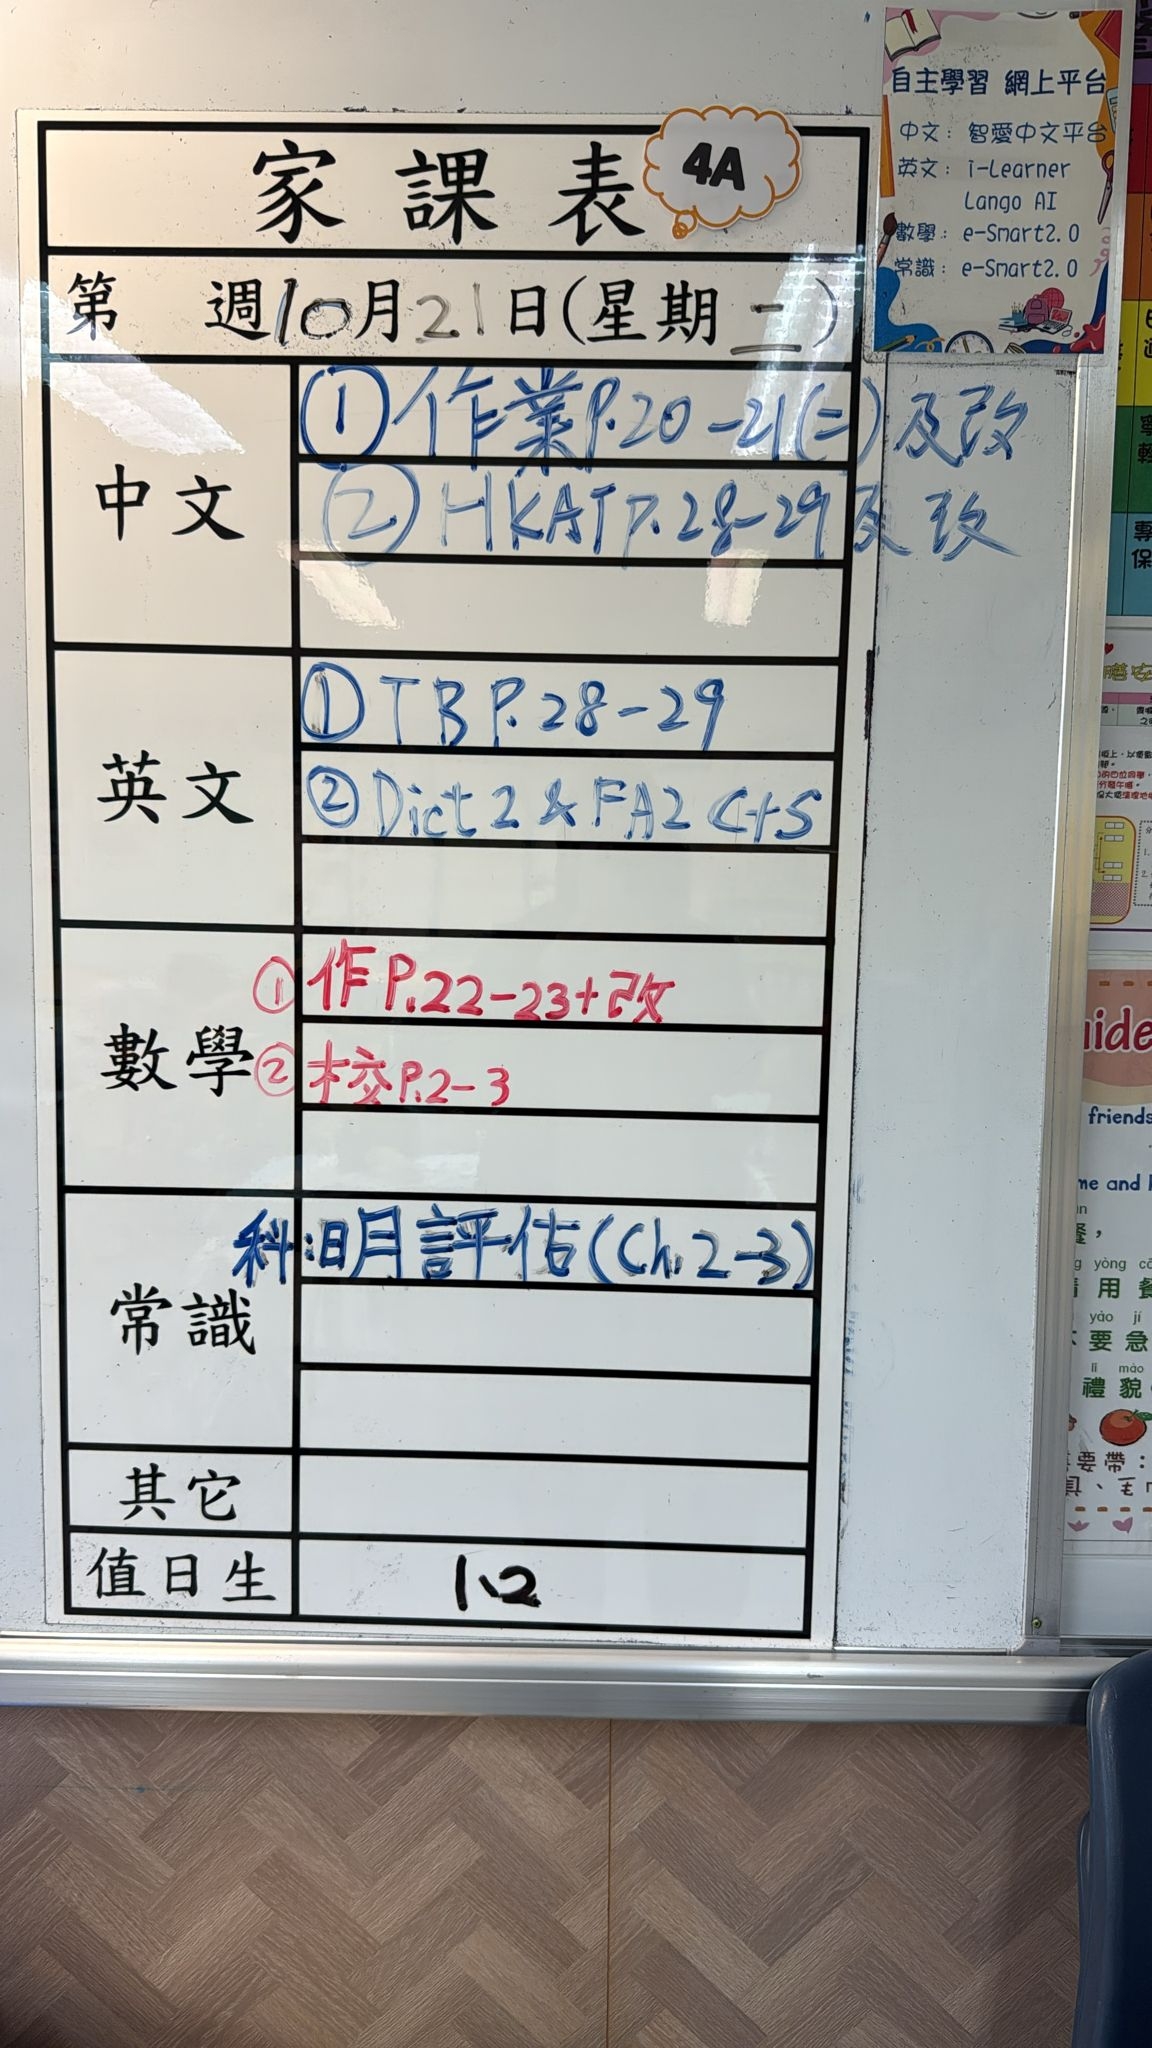 家課表 4A
第 週10月21日(星期二)
中文
①作業P.20-21(二)及改
②HKAT P.28-29及改
英文
①TB P.28-29
②Dict 2 & FA2 C+S
數學
①作P.22-23+改
②校P.2-3
常識
科:明評估(Ch.2-3)
其它
值日生 1.2
自主學習 網上平台
中文：智愛中文平台
英文：i-Learner
Lango AI
數學：e-Smart2.0
常識：e-Smart2.0
friends
me and
yòng
用餐
yào jí
要急
lǐ mào
禮貌
要帶：